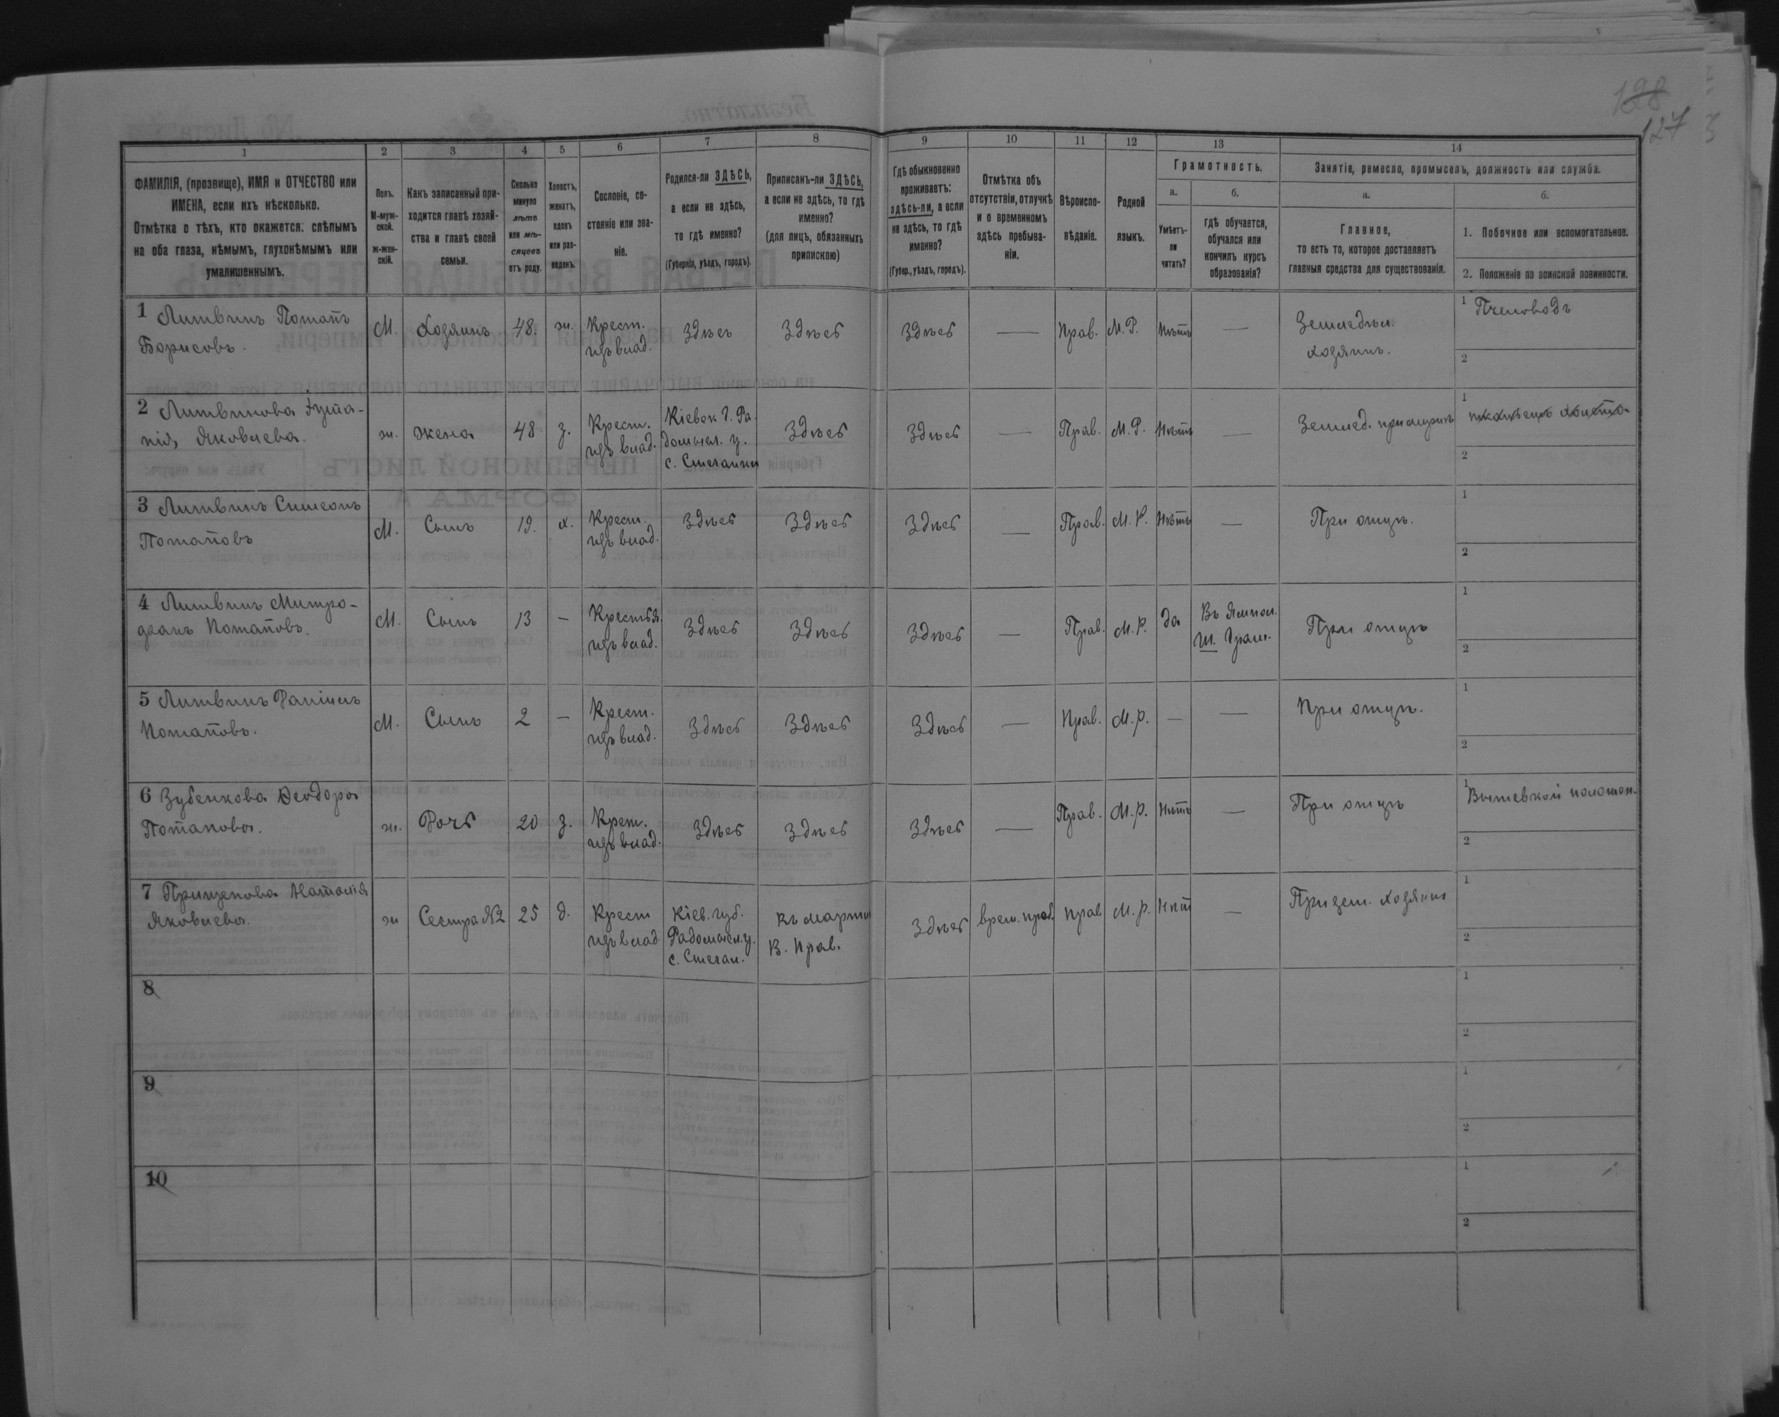 128
127
1 2 3 4 5 6 7 8 9 10 11 12 13 14
ФАМИЛІЯ, (прозвище), ИМЯ и ОТЧЕСТВО или ИМЕНА, если ихъ нѣсколько.
Отмѣтка о тѣхъ, кто окажется: слѣпымъ на оба глаза, нѣмымъ, глухонѣмымъ или умалишеннымъ.
Полъ. М-мужской. ж-женскій.
Какъ записанный приходится главѣ хозяйства и главѣ своей семьи.
Сколько минуло лѣтъ или мѣсяцевъ отъ роду.
Холостъ, женатъ, вдовъ или разведенъ.
Сословіе, состояніе или званіе.
Родился-ли ЗДѢСЬ, а если не здѣсь, то гдѣ именно?
(Губернія, уѣздъ, городъ).
Приписанъ-ли ЗДѢСЬ, а если не здѣсь, то гдѣ именно?
(для лицъ, обязанныхъ припискою)
Гдѣ обыкновенно проживаетъ: здѣсь-ли, а если не здѣсь, то гдѣ именно?
(Губер., уѣздъ, городъ).
Отмѣтка объ отсутствіи, отлучкѣ и о временномъ здѣсь пребываніи.
Вѣроисповѣданіе.
Родной языкъ.
Грамотность.
а. б.
Умѣетъ-ли читать?
гдѣ обучается, обучался или кончилъ курсъ образованія?
Занятіе, ремесло, промыселъ, должность или служба.
а. б.
Главное,
то есть то, которое доставляетъ главныя средства для существованія.
1. Побочное или вспомогательное.
2. Положеніе по воинской повинности.
1 Литвинъ Потапъ Борисовъ. М. Хозяинъ 48. ж. Крест. изъ влад. Здѣсь Здѣсь Здѣсь — Прав. М.Р. Нѣтъ — Земледѣл. хозяинъ. 1 Пчеловодъ
2
2 Литвинова Яковлева. ж. жена 48 з. Крест. изъ влад. Кіевск. Г. Радомысл. у. с. Здѣсь Здѣсь — Прав. М.Р. Нѣтъ — Землед. при мужѣ 1
2
3 Литвинъ Симеонъ Потаповъ М. Сынъ 19. х. Крест. изъ влад. Здѣсь Здѣсь Здѣсь — Прав. М.Р. Нѣтъ — При отцѣ. 1
2
4 Литвинъ Митрофанъ Потаповъ. М. Сынъ 13 — Крестья. изъ влад. Здѣсь Здѣсь Здѣсь — Прав. М.Р. да Въ Ш. Грам. При отцѣ 1
2
5 Литвинъ Даніилъ Потаповъ. М. Сынъ 2 — Крест. изъ влад. Здѣсь Здѣсь Здѣсь — Прав. М.р. — — При отцѣ. 1
2
6 Зубенкова Ѳеодора Потапова. ж. Дочь 20 з. Крест. изъ влад. Здѣсь Здѣсь Здѣсь — Прав. М.р. Нѣтъ — При отцѣ 1
2
7 Прищепова Наталія Яковлева. ж Сестра №2 25 д. Крест изъ влад Кіев. губ. Радомысл. у. с. Здѣсь врем. преб. прав М.р. Нѣтъ — При зем. хозяинѣ 1
2
8 1
2
9 1
2
10 1
2